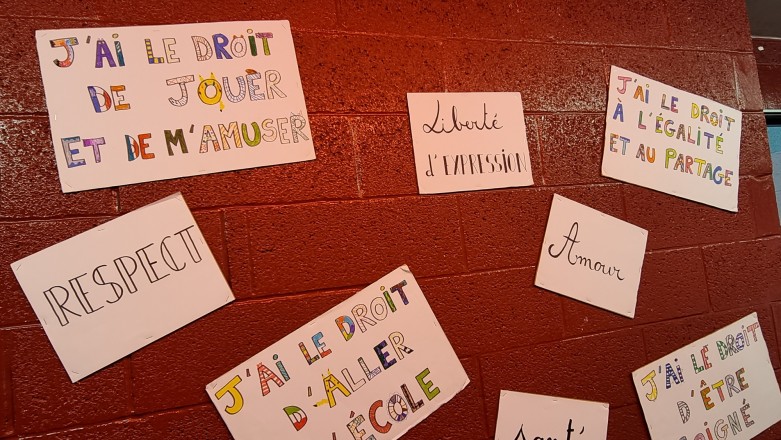 J'AI LE DROIT
DE JOUER
ET DE M'AMUSER
Liberté
d'EXPRESSION
J'AI LE DROIT
À L'ÉGALITÉ
ET AU PARTAGE
RESPECT
Amour
J'AI LE DROIT
D'ALLER
L'ÉCOLE
J'AI LE DROIT
D'ÊTRE
santé